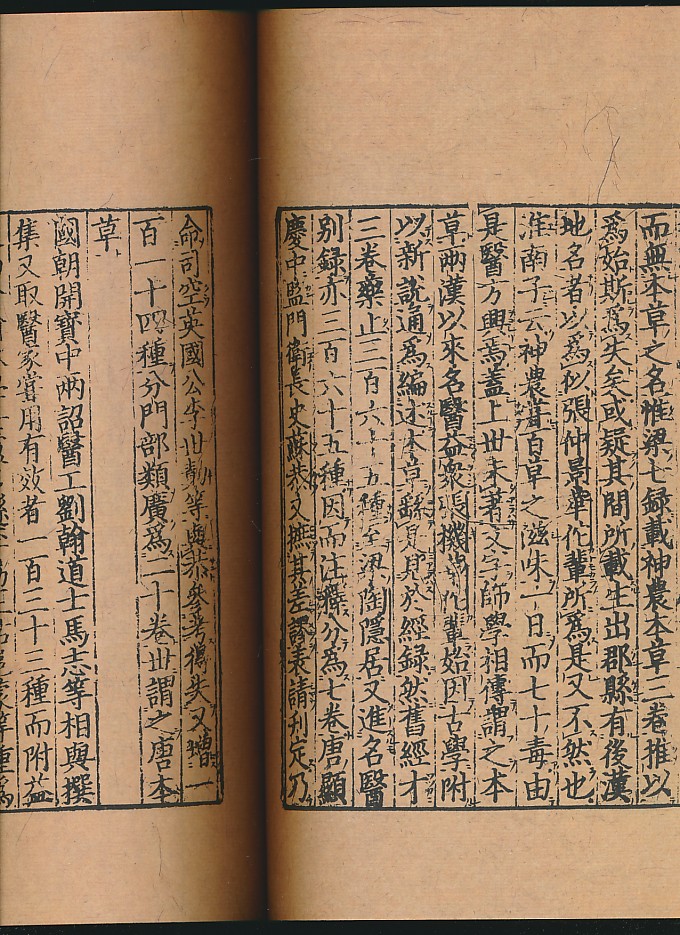 而無本草之名惟梁七録載神農本草三卷推以
爲始斯爲失矣或疑其間所載生出郡縣有後漢
地名者以爲似張仲景華佗輩所爲是又不然也
淮南子云神農嘗百草之滋味一日而七十毒由
是醫方興焉蓋上世未著文字師學相傳謂之本
草兩漢以來名醫益衆張機華佗輩始因古學附
以新說通爲編述本草繇是見於經録然舊經才
三卷藥止三百六十五種至梁陶隱居又進名醫
別録亦三百六十五種因而注釋分爲七卷唐顯
慶中監門衛長史蘇恭又摭其差謬表請刊定乃
命司空英國公李世勣等與恭參考得失又增一
百一十四種分門部類廣爲二十卷世謂之唐本
草
國朝開寶中兩詔醫工劉翰道士馬志等相與撰
集又取醫家嘗用有效者一百三十三種而附益